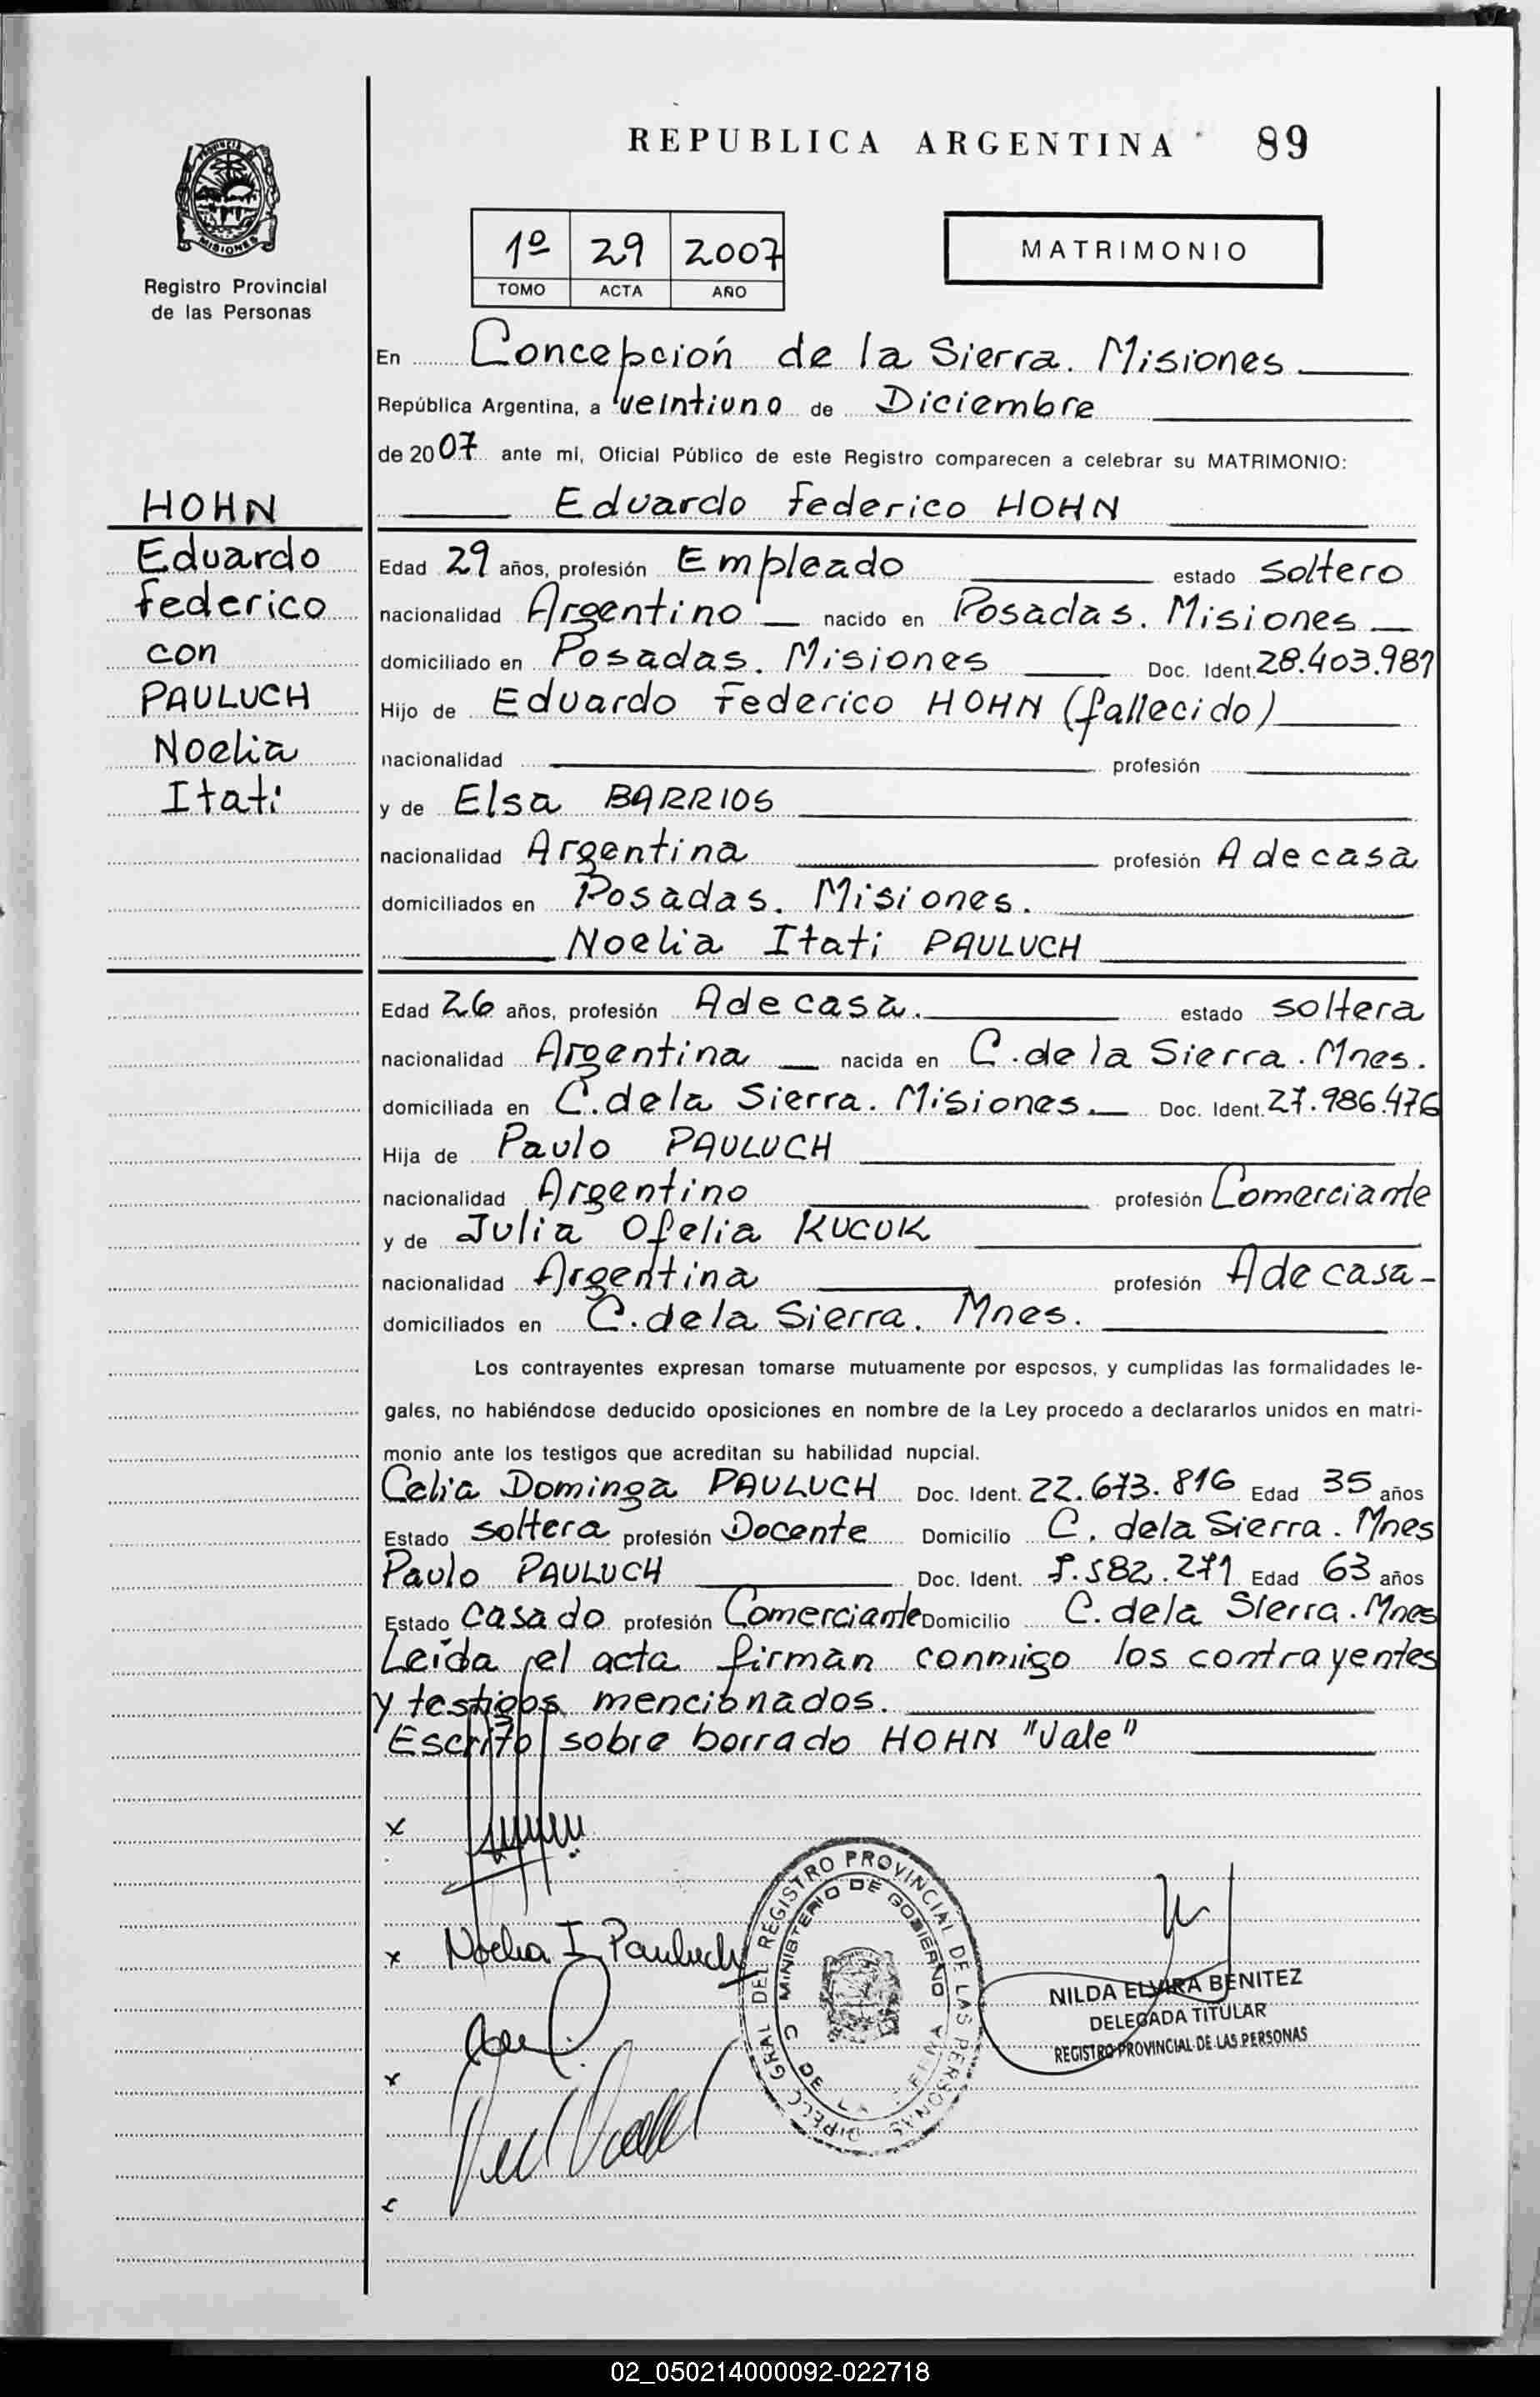 REPUBLICA ARGENTINA 89
MISIONES
Registro Provincial
de las Personas
1º 29 2007
TOMO ACTA AÑO
MATRIMONIO
En Concepción de la Sierra. Misiones
República Argentina, a veintiuno de Diciembre
de 2007 ante mi, Oficial Público de este Registro comparecen a celebrar su MATRIMONIO:
HOHN
Eduardo
Federico
con
PAULUCH
Noelia
Itatí
Eduardo Federico HOHN
Edad 29 años, profesión Empleado estado soltero
nacionalidad Argentino nacido en Posadas. Misiones
domiciliado en Posadas. Misiones Doc. Ident. 28.403.981
Hijo de Eduardo Federico HOHN (fallecido)
nacionalidad profesión
y de Elsa BARRIOS
nacionalidad Argentina profesión A de casa
domiciliados en Posadas. Misiones.
Noelia Itati PAULUCH
Edad 26 años, profesión A de casa. estado soltera
nacionalidad Argentina nacida en C. de la Sierra. Mnes.
domiciliada en C. de la Sierra. Misiones. Doc. Ident. 27.986.476
Hija de Paulo PAULUCH
nacionalidad Argentino profesión Comerciante
y de Julia Ofelia KUCUK
nacionalidad Argentina profesión A de casa-
domiciliados en C. de la Sierra. Mnes.
Los contrayentes expresan tomarse mutuamente por esposos, y cumplidas las formalidades le-
gales, no habiéndose deducido oposiciones en nombre de la Ley procedo a declararlos unidos en matri-
monio ante los testigos que acreditan su habilidad nupcial.
Celia Dominga PAULUCH Doc. Ident. 22.673.816 Edad 35 años
Estado soltera profesión Docente Domicilio C. de la Sierra. Mnes
Paulo PAULUCH Doc. Ident. .582.271 Edad 63 años
Estado casado profesión Comerciante Domicilio C. de la Sierra. Mnes
Leída el acta firman conmigo los contrayentes
y testigos mencionados.
Escrito sobre borrado HOHN "Vale"
x
x Noelia I. Pauluch
x
GRAL DEL REGISTRO PROVINCIAL DE LAS PERSONAS
MINISTERIO DE GOBIERNO
NILDA ELVIRA BENITEZ
DELEGADA TITULAR
REGISTRO PROVINCIAL DE LAS PERSONAS
02_050214000092-022718